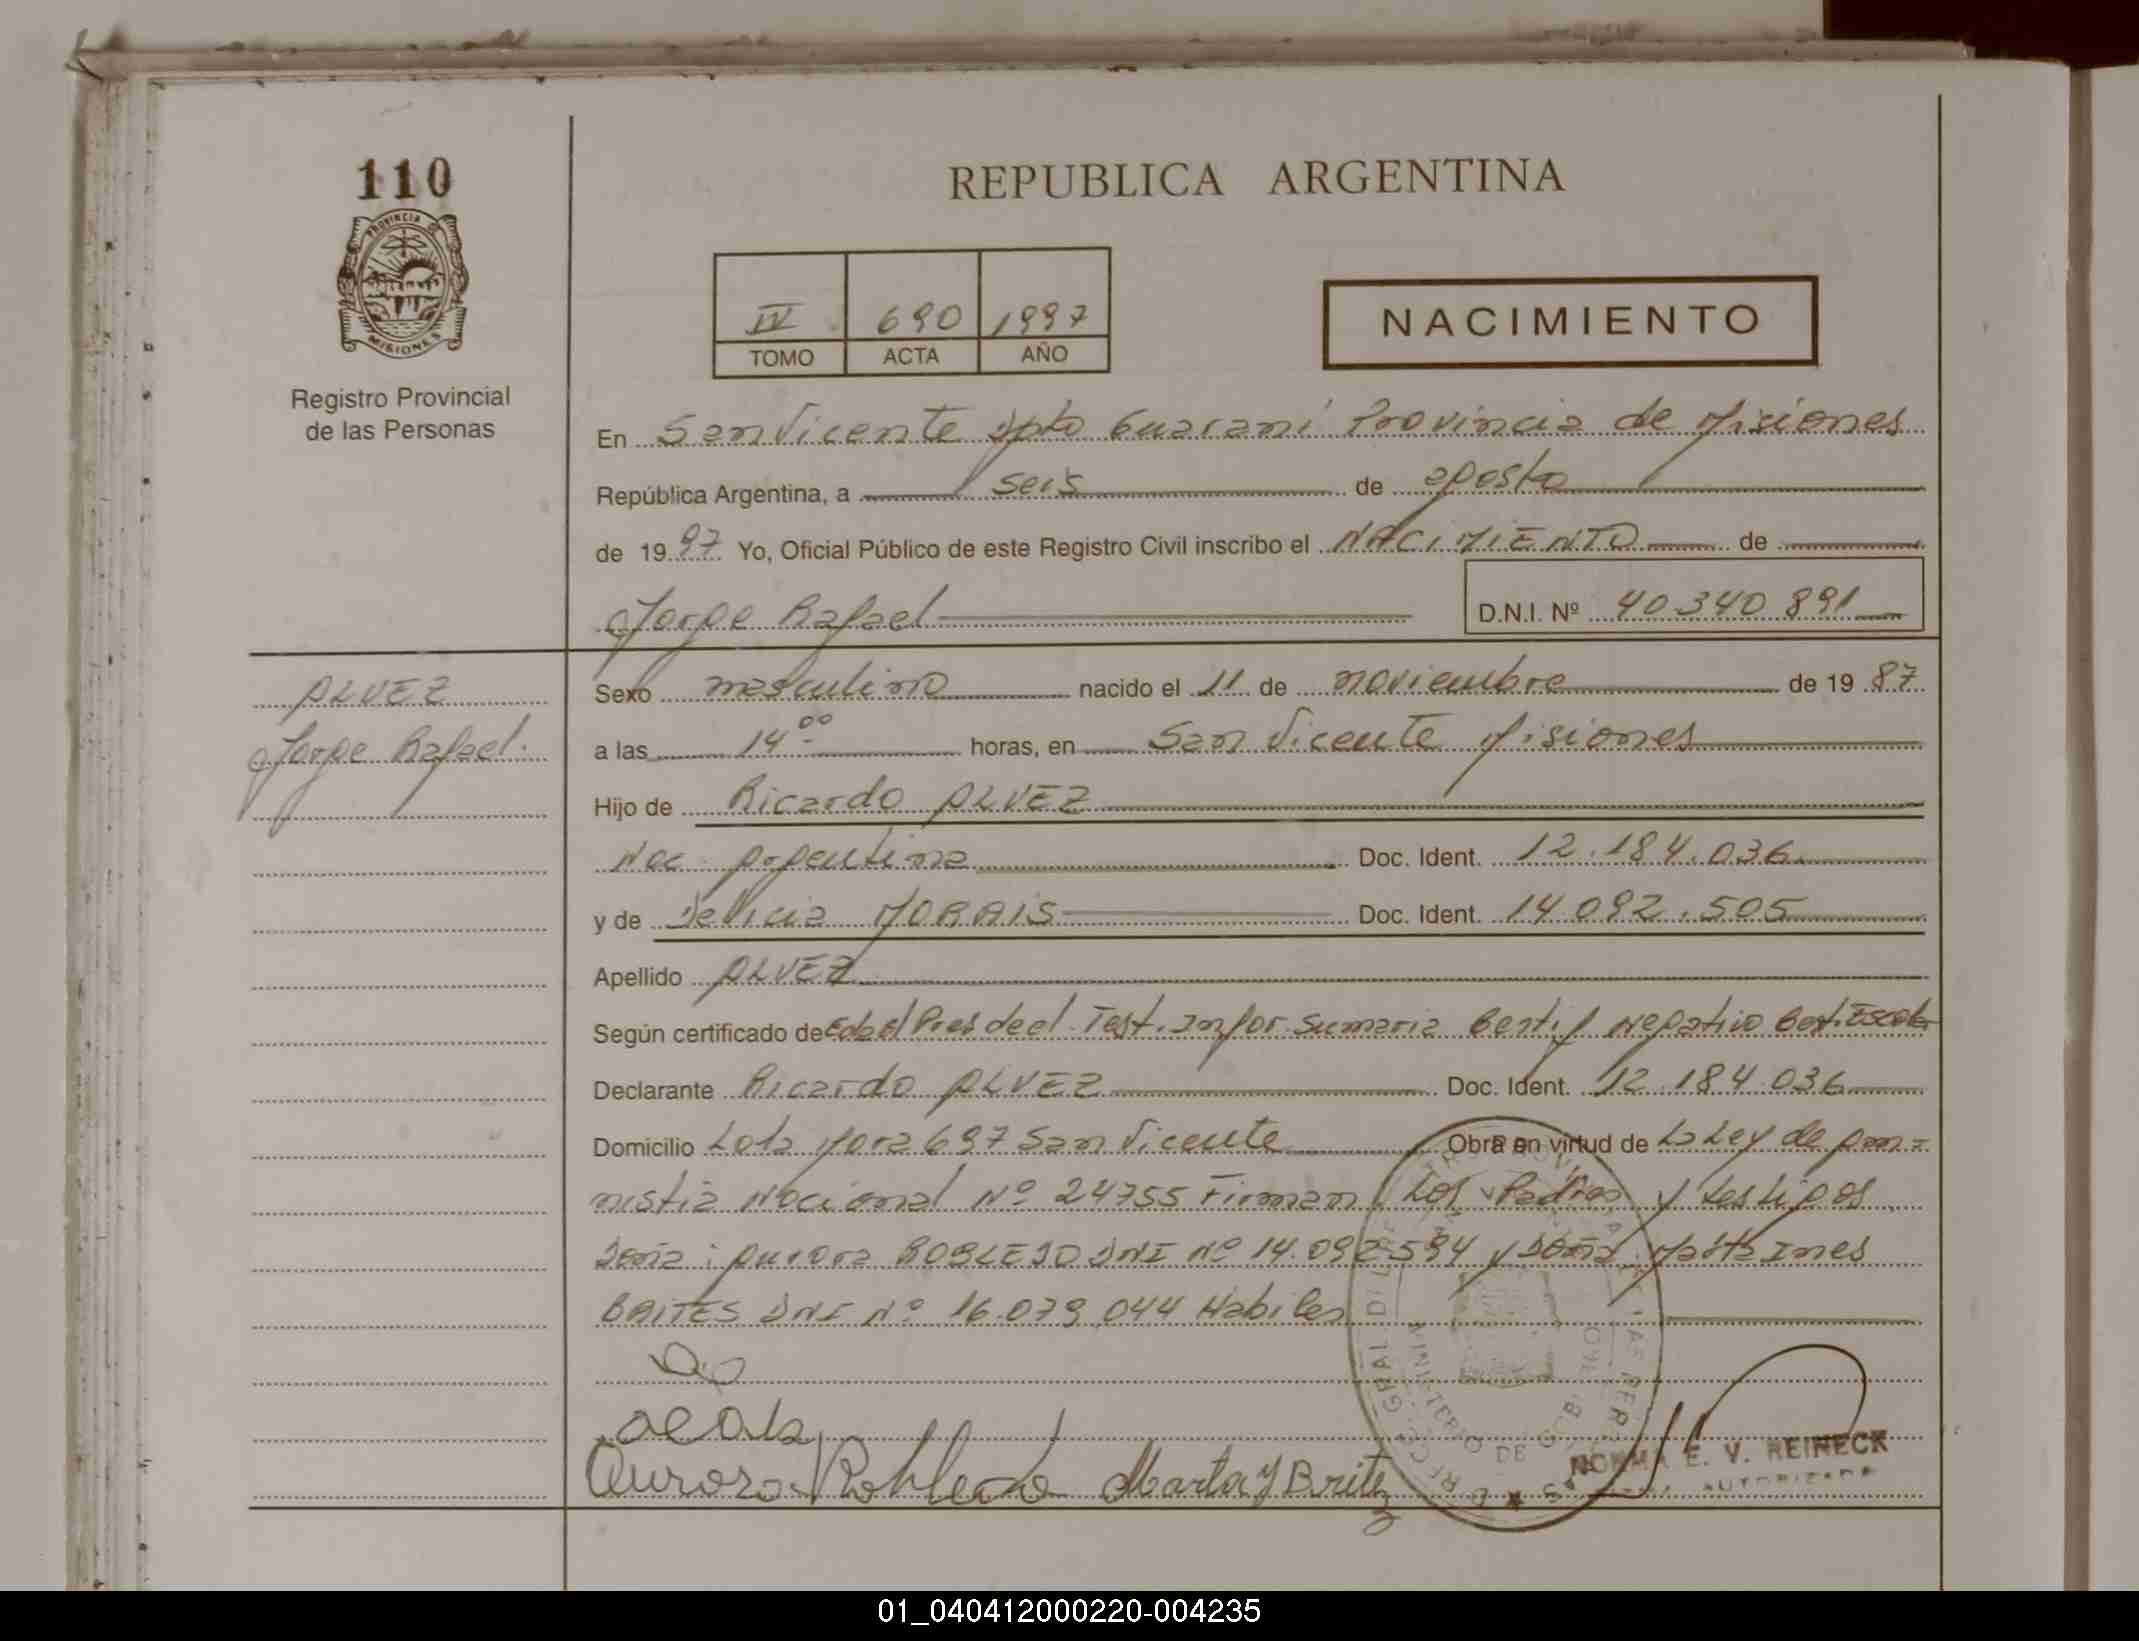 110
PROVINCIA
MISIONES
Registro Provincial
de las Personas
REPUBLICA ARGENTINA
IV 690 1997
TOMO ACTA AÑO
NACIMIENTO
En San Vicente Dpto Guaraní Provincia de Misiones
República Argentina, a seis de agosto
de 1997 Yo, Oficial Público de este Registro Civil inscribo el NACIMIENTO de
Jorge Rafael D.N.I. Nº 40.340.891
ALVEZ
Jorge Rafael.
Sexo masculino nacido el 11 de noviembre de 1987
a las 14⁰⁰ horas, en San Vicente Misiones
Hijo de Ricardo ALVEZ
Nac. Argentina Doc. Ident. 12.184.036
y de Delicia MORAIS Doc. Ident. 14.092.505
Apellido ALVEZ
Según certificado de Edad Pres deel. Test. Infor. Sumaria Certif Negativo Cert. Escolar
Declarante Ricardo ALVEZ Doc. Ident. 12.184.036
Domicilio Lote Mora 697 San Vicente Obra en virtud de La Ley de Am-
nistía Nacional Nº 24755 Firman Los Padres y testigos
Doña: Aurora ROBLEDO DNI Nº 14.092.594 y Doña Marta Ines
BRITES DNI Nº 16.079.044 Habiles
Aurora Robledo Marta Y Britez
MINISTERIO DE
NORMA E. V. REINECK
AUTORIZADA
01_040412000220-004235